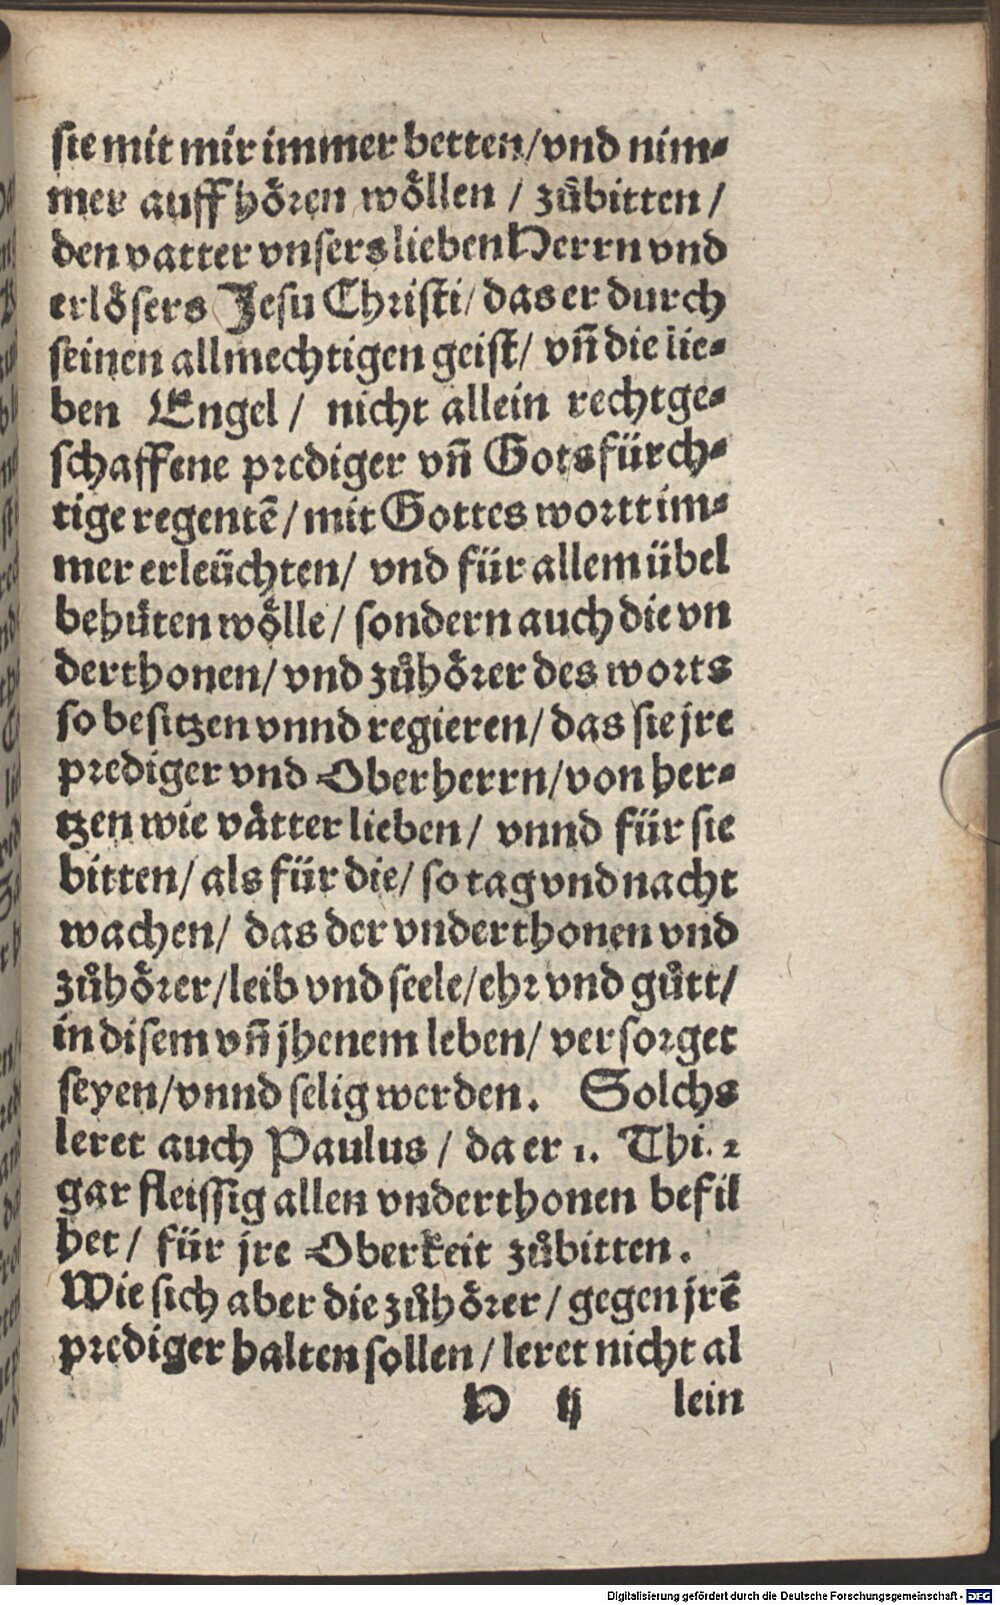 sie mit mir immer betten/vnd nim⸗
mer auff hören wöllen / zůbitten /
den vatter vnsers lieben Herrn vnd
erlösers Jesu Christi/ das er durch
seinen allmechtigen geist/ vñ die lie⸗
ben Engel / nicht allein rechtge⸗
schaffene prediger vñ Gotsfürch⸗
tige regentē/mit Gottes wortt im⸗
mer erleüchten/ vnd für allem übel
behüten wölle/ sondern auch die vn
derthonen/ vnd zůhörer des worts
so besitzen vnnd regieren/ das sie jre
prediger vnd Oberherrn/von her⸗
tzen wie vätter lieben/ vnnd für sie
bitten/ als für die/ so tag vnd nacht
wachen/ das der vnderthonen vnd
zůhörer/leib vnd seele/ehr vnd gůtt/
in disem vñ jhenem leben/ versorget
seyen/vnnd selig werden. Solchs
leret auch Paulus / da er 1. Thi. 2
gar fleissig allen vnderthonen befil
het / für jre Oberkeit zůbitten.
Wie sich aber die zůhörer / gegen jrē
prediger halten sollen / leret nicht al
H ij lein
Digitalisierung gefördert durch die Deutsche Forschungsgemeinschaft - DFG